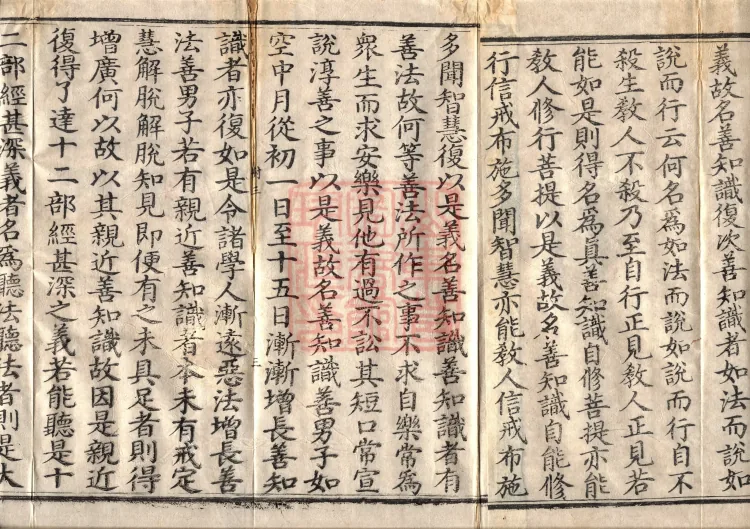 義故名善知識復次善知識者如法而說如
說而行云何名爲如法而說如說而行自不
殺生敎人不殺乃至自行正見敎人正見若
能如是則得名爲眞善知識自修菩提亦能
敎人修行菩提以是義故名善知識自能修
行信戒布施多聞智慧亦能敎人信戒布施
多聞智慧復以是義名善知識善知識者有
善法故何等善法所作之事不求自樂常爲
衆生而求安樂見他有過不訟其短口常宣
說淳善之事以是義故名善知識善男子如
空中月從初一日至十五日漸漸增長善知
識者亦復如是令諸學人漸遠惡法增長善
法善男子若有親近善知識者本未有戒定
慧解脫解脫知見即便有之未具足者則得
增廣何以故以其親近善知識故因是親近
復得了達十二部經甚深之義若能聽是十
二部經甚深義者名爲聽法聽法者則是大